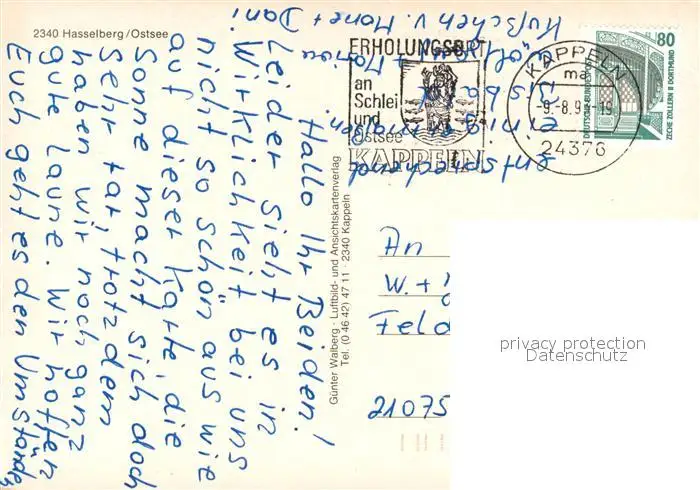 2340 Hasselberg/Ostsee
Hallo Ihr Beiden!
Leider sieht es in
Wirklichkeit bei uns
nicht so schön aus wie
auf dieser Karte, die
Sonne macht sich doch
sehr rar, trotzdem
haben wir noch ganz
gute Laune. Wir hoffen
Euch geht es den Umständen
Entsprechend
einigermaßen.
Bis bald
Küßchen v. Mone + Dani
Günter Walberg · Luftbild- und Ansichtskartenverlag
Tel. (0 46 42) 47 11 · 2340 Kappeln
ERHOLUNGSORT
an
Schlei
und
Ostsee
KAPPELN
KAPPELN
ma
-9.-8.9
-19
24376
80
DEUTSCHE BUNDESPOST
ZECHE ZOLLERN II DORTMUND
An
W. +
Feld
21075
privacy protection
Datenschutz